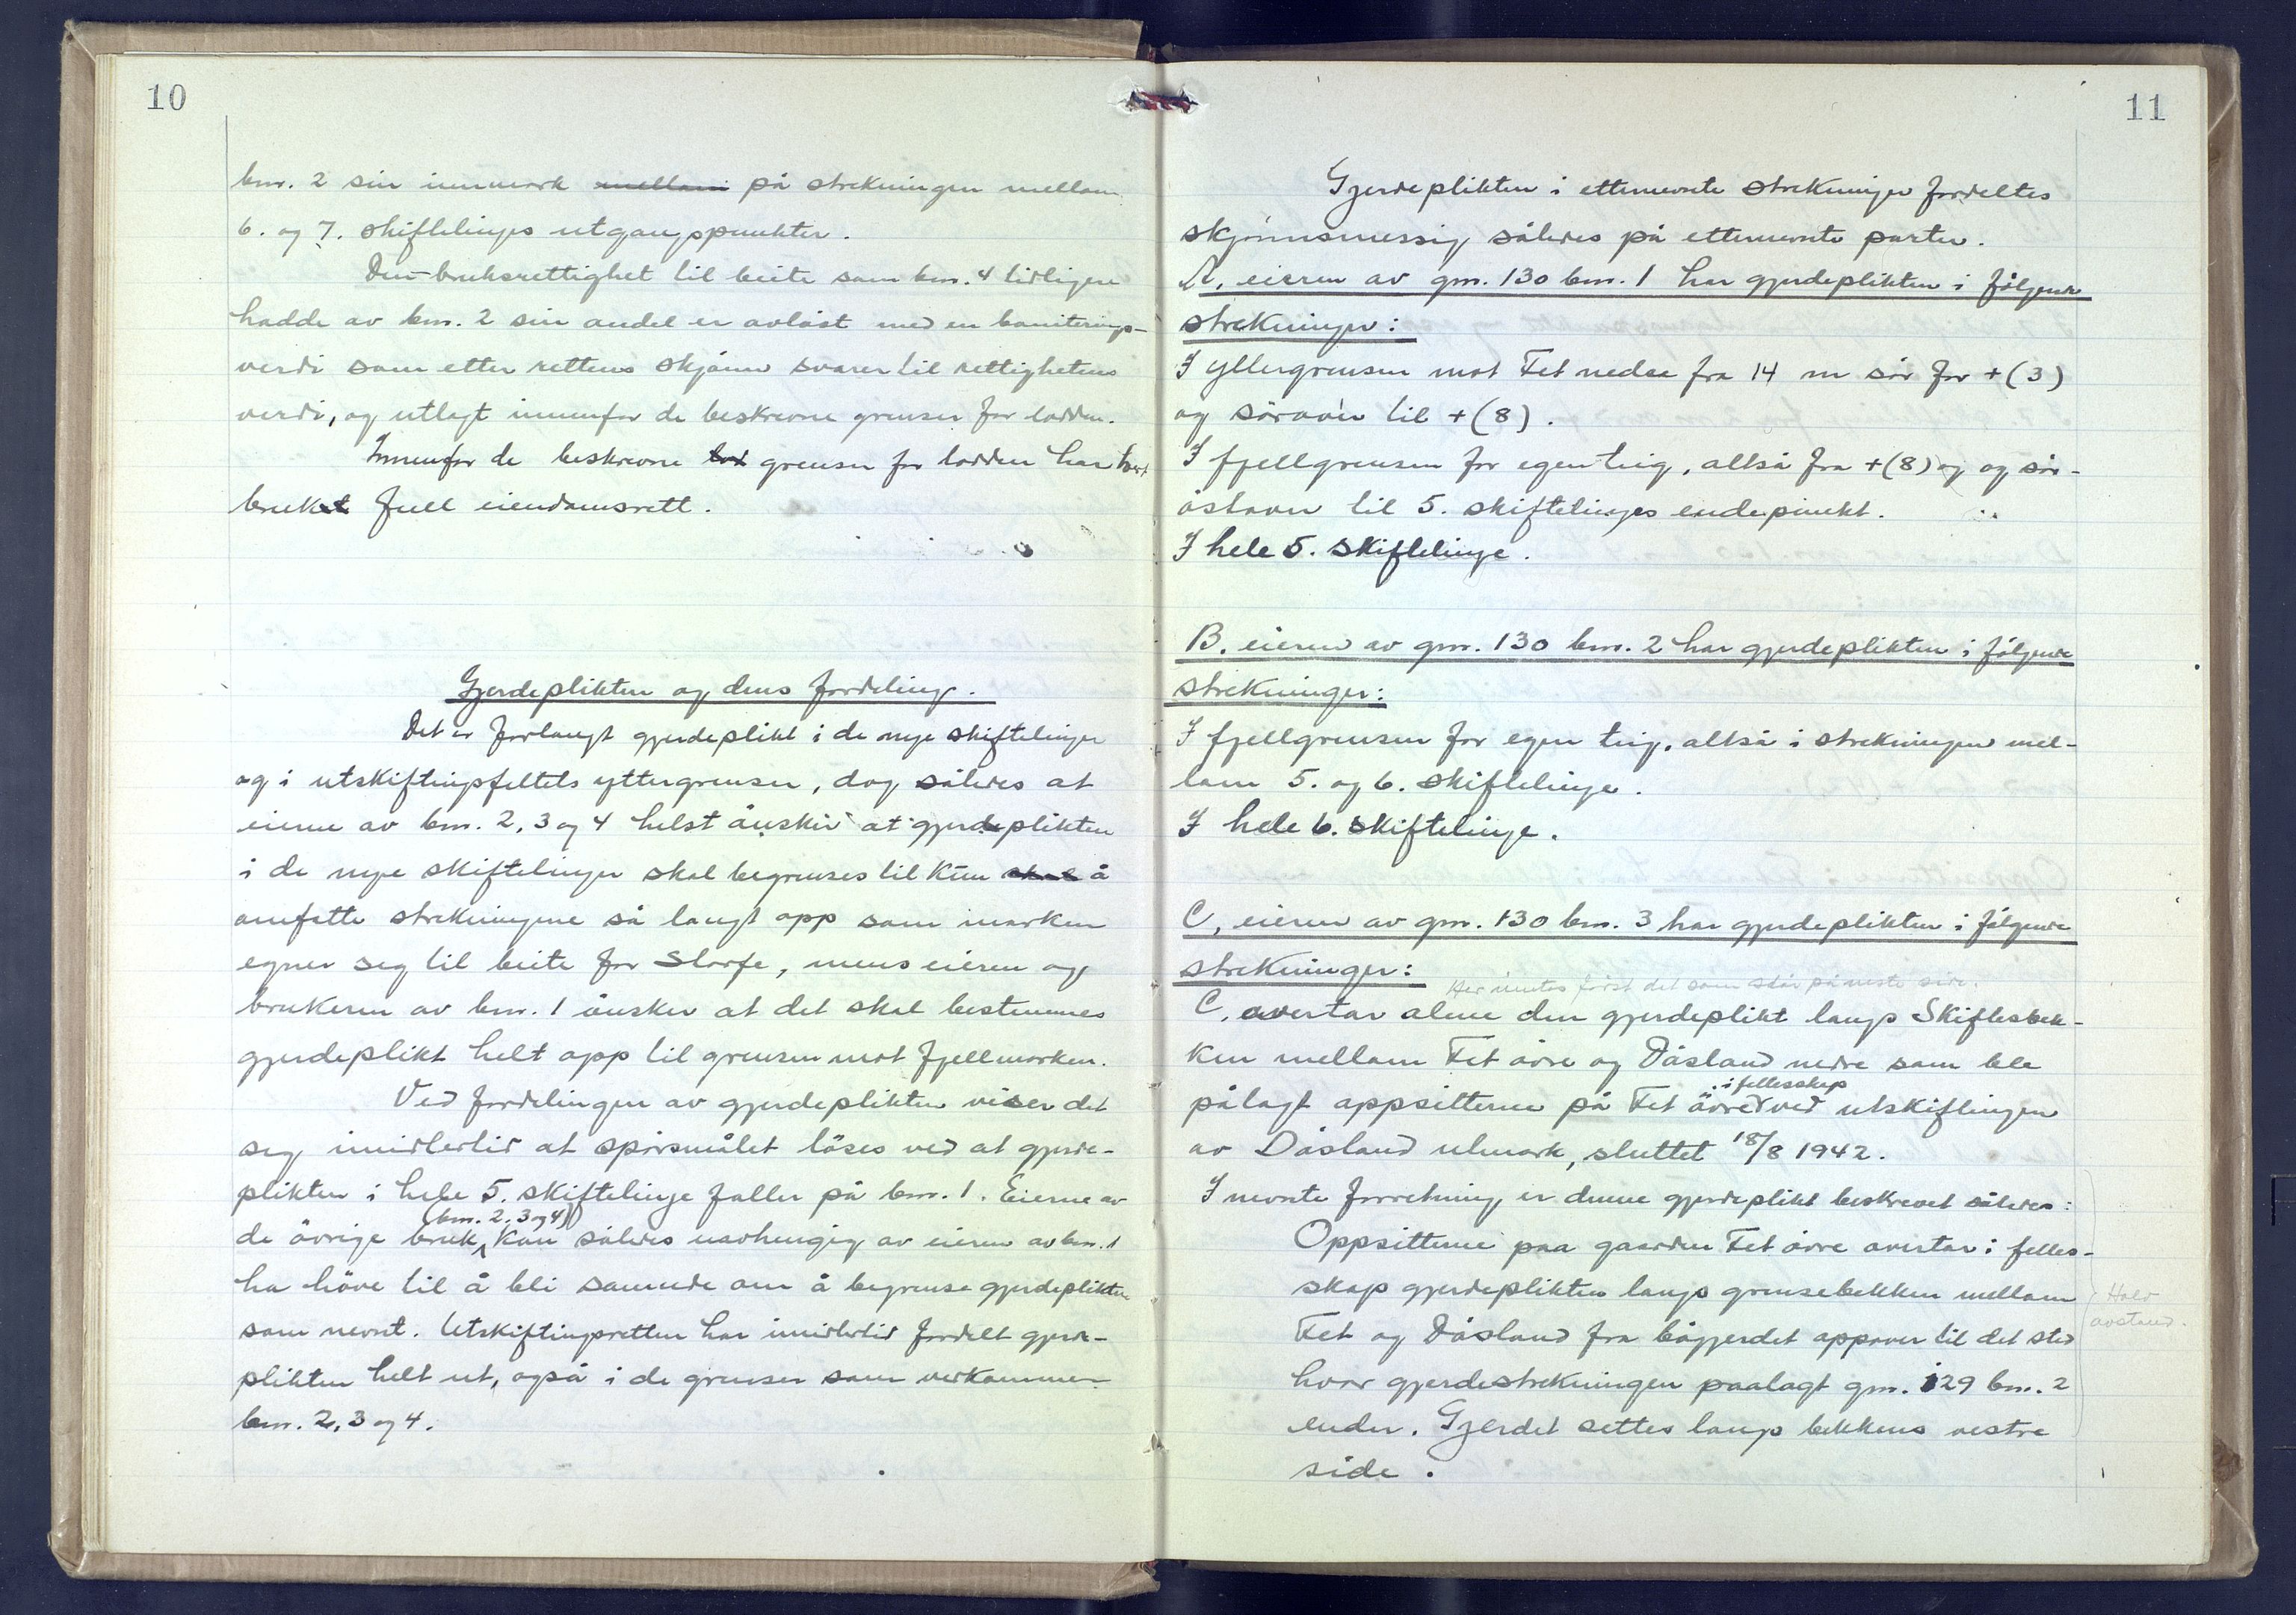 10
bnr. 2 sin innmark mellom på strekningen mellom
6. og 7. skiftelinjes utgangspunkter.
Den bruksrettighet til beite som bnr. 4 tidligere
hadde av bnr. 2 sin andel er avløst med en boniterings-
verdi som etter rettens skjønn svarer til rettighetens
verdi, og utlagt innenfor de beskrevne grenser for lodden.
Innenfor de beskrevne lod grenser for lodden har hvert
bruket full eiendomsrett.
Gjerdeplikten og dens fordeling.
Det er forlangt gjerdeplikt i de nye skiftelinjer
og i utskiftingsfeltets yttergrenser, dog således at
eierne av bnr. 2, 3 og 4 helst ønsker at gjerdeplikten
i de nye skiftelinjer skal begrenses til kun skal å
omfatte strekningene så langt opp som marken
egner seg til beite for storfe, mens eieren og
brukeren av bnr. 1 ønsker at det skal bestemmes
gjerdeplikt helt opp til grensen mot fjellmarken.
Ved fordelingen av gjerdeplikten viser det
seg imidlertid at spørsmålet løses ved at gjerde-
plikten i hele 5. skiftelinje faller på bnr. 1. Eierne av
(bnr. 2, 3 og 4)
de øvrige bruk, kan således uavhengig av eieren av bnr. 1
ha høve til å bli samnde om å begrense gjerdeplikten
som nevnt. Utskiftingsretten har imidlertid fordelt gjerde-
plikten helt ut, også i de grenser som vedkommer
bnr. 2, 3 og 4.
11
Gjerdeplikten i etternevnte strekninger fordeltes
skjønnsmessig således på etternevnte parter.
A, eieren av gnr. 130 bnr. 1 har gjerdeplikten i følgende
strekninger:
I yttergrensen mot Fet nedre fra 14 m sør for +(3)
og sørover til +(8).
I fjellgrensen for egen teig, altså fra +(8) og og sør-
østover til 5. skiftelinjes endepunkt.
I hele 5. skiftelinje.
B. eieren av gnr. 130 bnr. 2 har gjerdeplikten i følgende
strekninger:
I fjellgrensen for egen teig, altså i strekningen mel-
lom 5. og 6. skiftelinje.
I hele 6. skiftelinje.
C, eieren av gnr. 130 bnr. 3 har gjerdeplikten i følgende
strekninger:
Her inntas først det som står på neste side.
C, overtar alene den gjerdeplikt langs Skiftesbek-
ken mellom Fet øvre og Dåsland nedre som ble
i fellesskap
pålagt oppsitterne på Fet øvre ved utskiftingen
av Dåsland utmark, sluttet 18/8 1942.
I nevnte forretning er denne gjerdeplikt beskrevet således:
Oppsitterne paa gaarden Fet øvre overtar i felles-
skap gjerdeplikten langs grensebekken mellom
Fet og Dåsland fra bøgjerdet oppover til det sted
hvor gjerdestrekningen paalagt gnr. 129 bnr. 2
ender. Gjerdet settes langs bekkens vestre
side.
Halv
avstand.